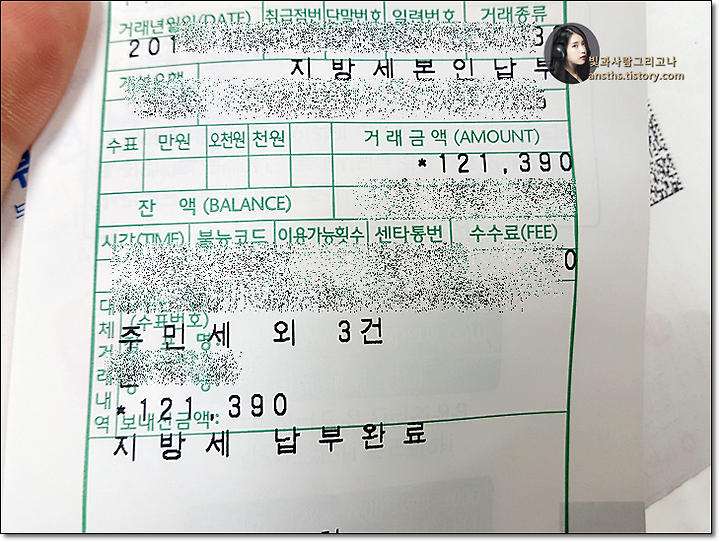 거래년월일(DATE) 취급점번 단말번호 일련번호 거래종류
201 3
빛과사람그리고나
ansths.tistory.com
지방세본인납부
수표 만원 오천원 천원 거래금액(AMOUNT)
*121,390
잔 액(BALANCE)
시각(TIME) 불능코드 이용가능횟수 센타통번 수수료(FEE)
0
대체거래내역
(수표번호)
주민세 외 3건
명
*121,390
보내신금액:
지방세 납부완료